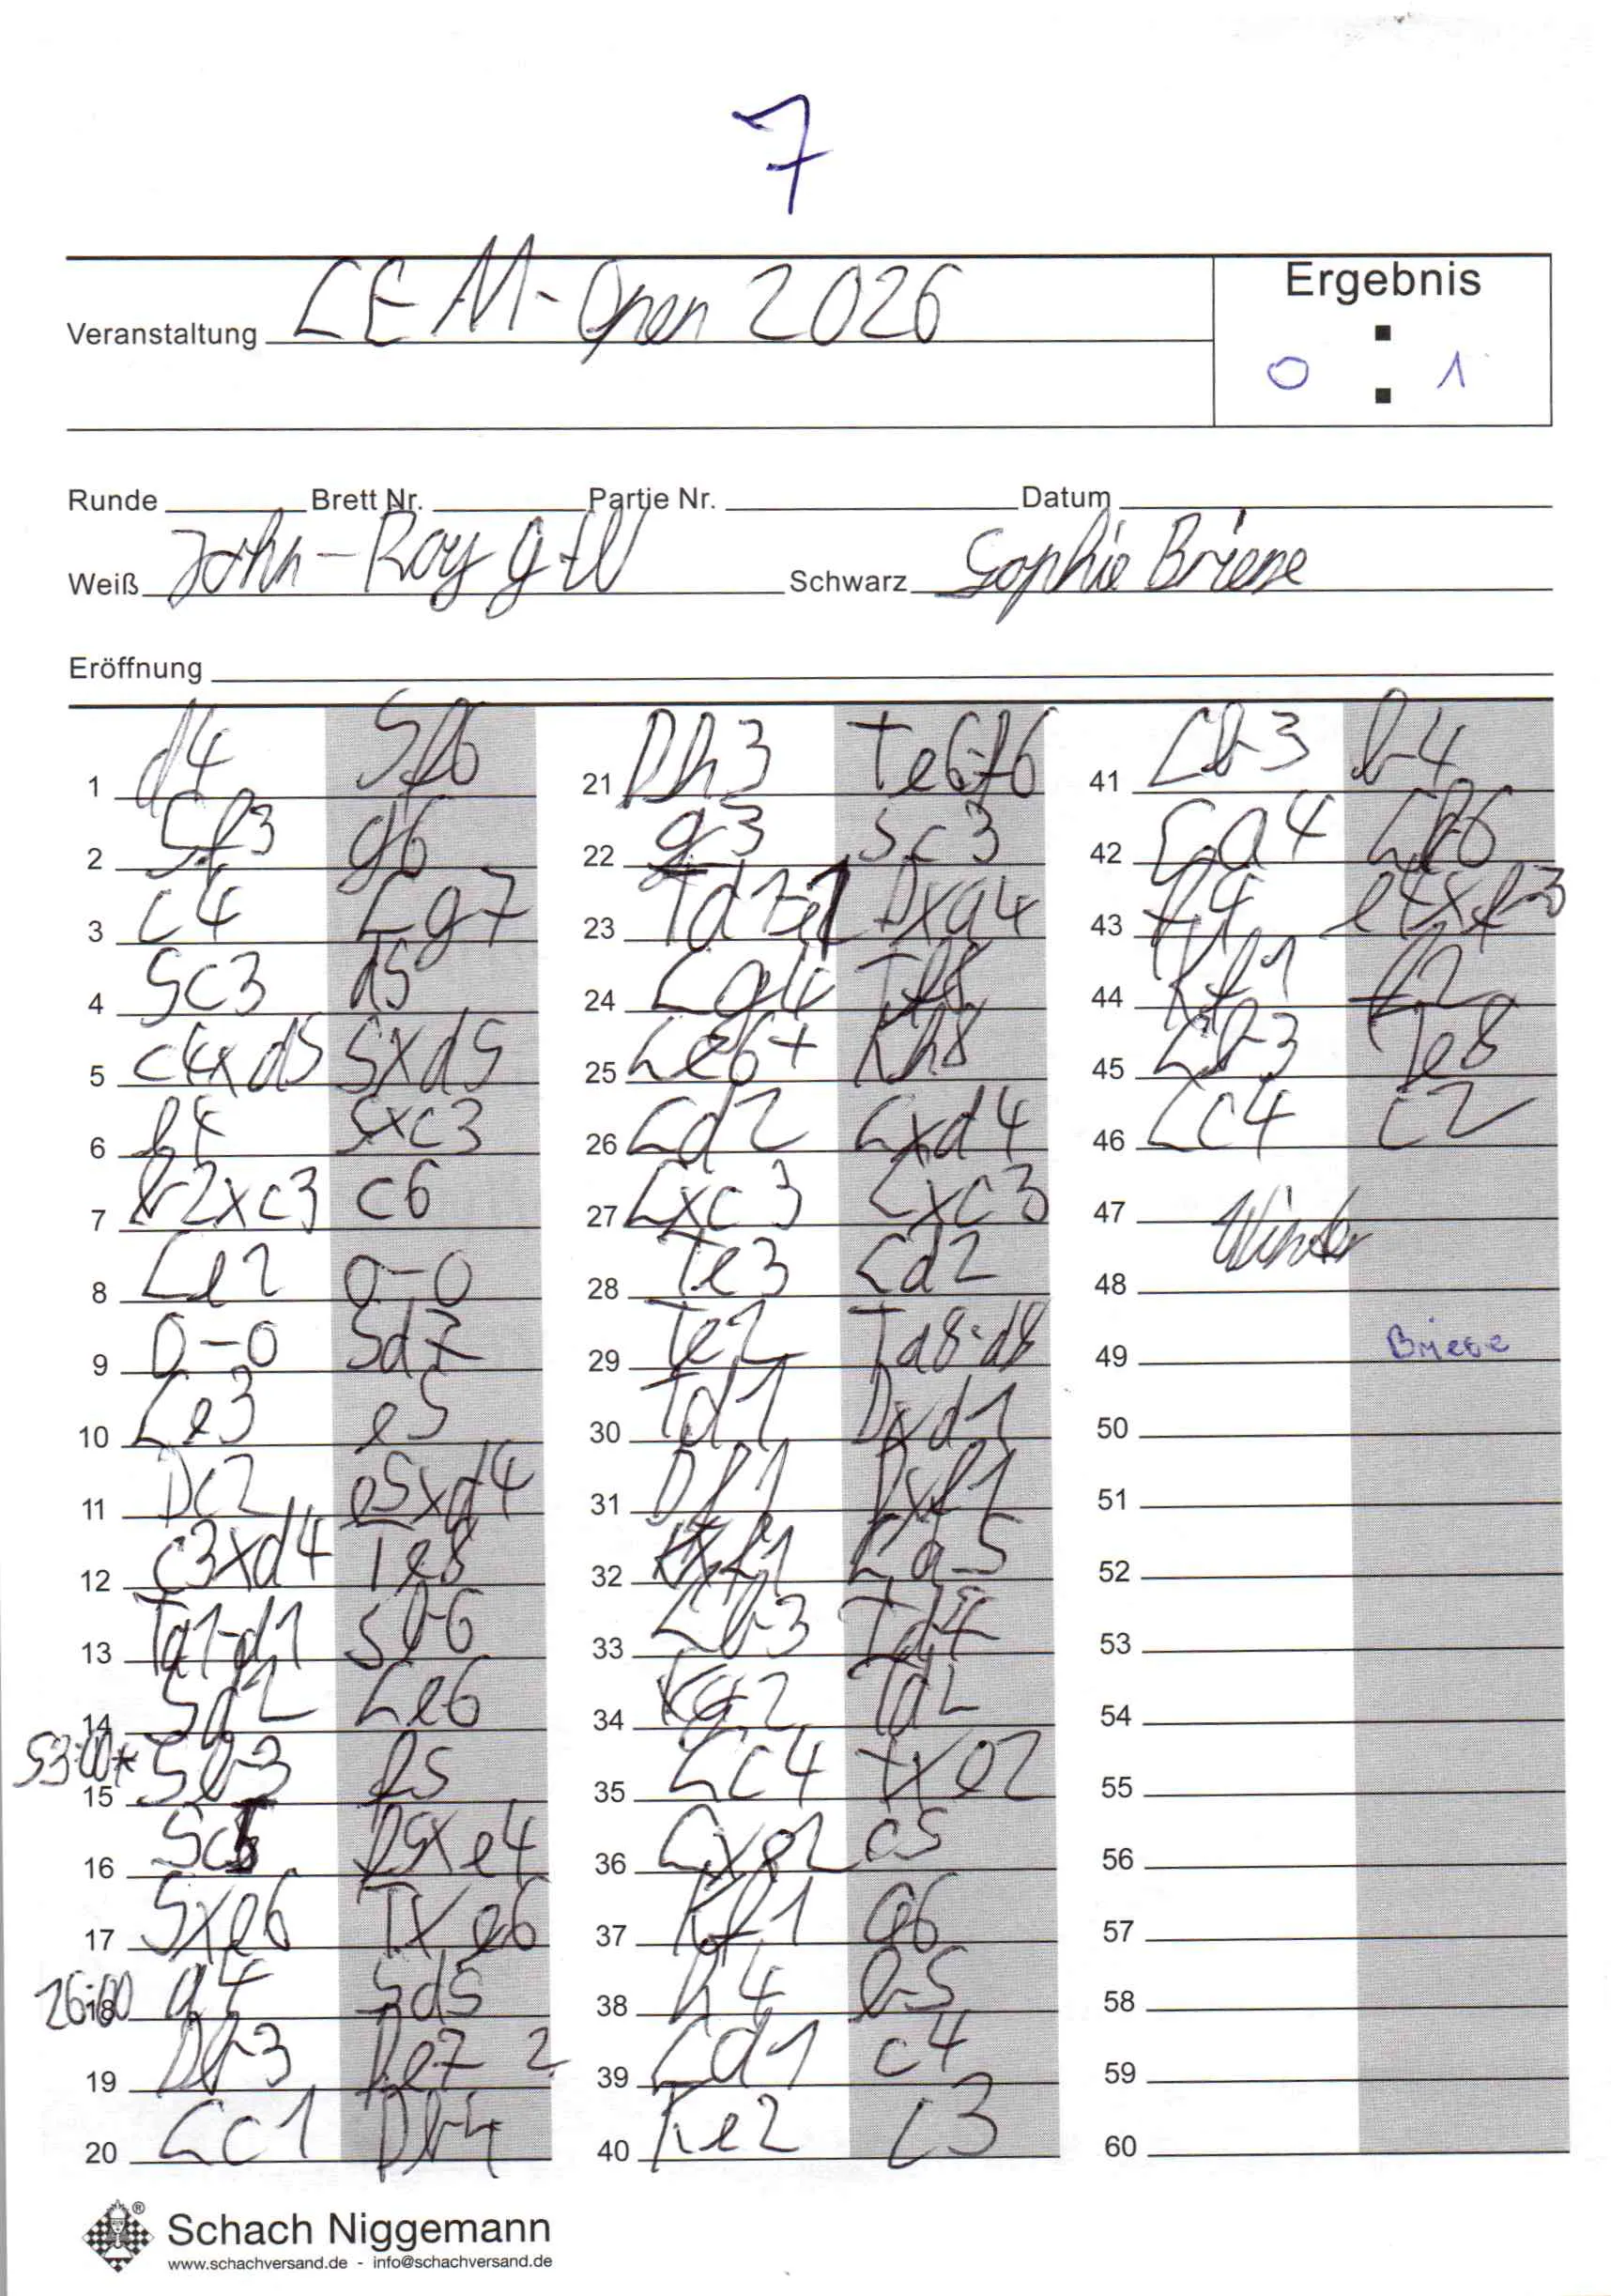 7
Veranstaltung LEM-Open 2026
Ergebnis
0 : 1
Runde Brett Nr. Partie Nr. Datum
Weiß John-Roy Schwarz Sophie Briese
Eröffnung
1 d4 Sf6
2 Sf3 g6
3 c4 Lg7
4 Sc3 d5
5 c4xd5 Sxd5
6 e4 Sxc3
7 b2xc3 c6
8 Le2 0-0
9 0-0 Sd7
10 Le3 e5
11 Dc2 e5xd4
12 c3xd4 Te8
13 Ta1-d1 Sb6
14 Sd2 Le6
53:00* 15 Sb3 f5
16 Sc5 f5xe4
17 Sxe6 Txe6
26:00 18 a4 Sd5
19 Db3 De7 2
20 Lc1 Db4
21 Dh3 Te6-f6
22 g3 Sc3
23 Td1-e1 Dxa4
24 Lg4 Tf8
25 Le6+ Kh8
26 Ld2 Lxd4
27 Lxc3 Lxc3
28 Te3 Ld2
29 Te2 Ta8-d8
30 Td1 Dxd1
31 Df1 Dxf1
32 Kxf1 La5
33 Lb3 Td4
34 Kg2 Td2
35 Lc4 Txe2
36 Lxe2 c5
37 Kf1 a6
38 h4 b5
39 Ld1 c4
40 Ke2 c3
41 Lb3 b4
42 La4 Lb6
43 f4 e4xf3
44 Kf1 f2
45 Lb3 Te8
46 Lc4 c2
47
48
49 Briese
50
51
52
53
54
55
56
57
58
59
60
Schach Niggemann
www.schachversand.de - info@schachversand.de